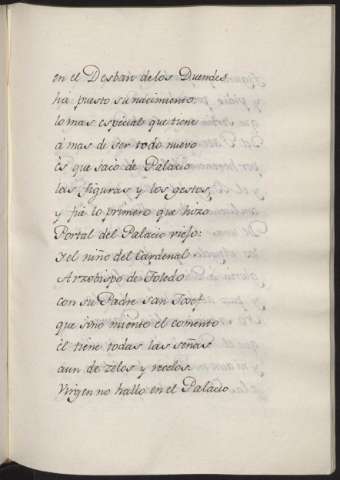 en el Desban de los Duendes
ha puesto su nacimiento.
lo mas espicial que tiene
á mas de ser todo nuevo
ès que saco de Palacio
las figuras y los gestos,
y fué lo primero que hizo
Portal del Palacio viejo:
y el niño del Cardenal
Arzobispo de Toledo
con su Padre san Josef
que sino miento el comento
èl tiene todas las señas
aun de zelos y recelos.
Virgen no hallo en el Palacio